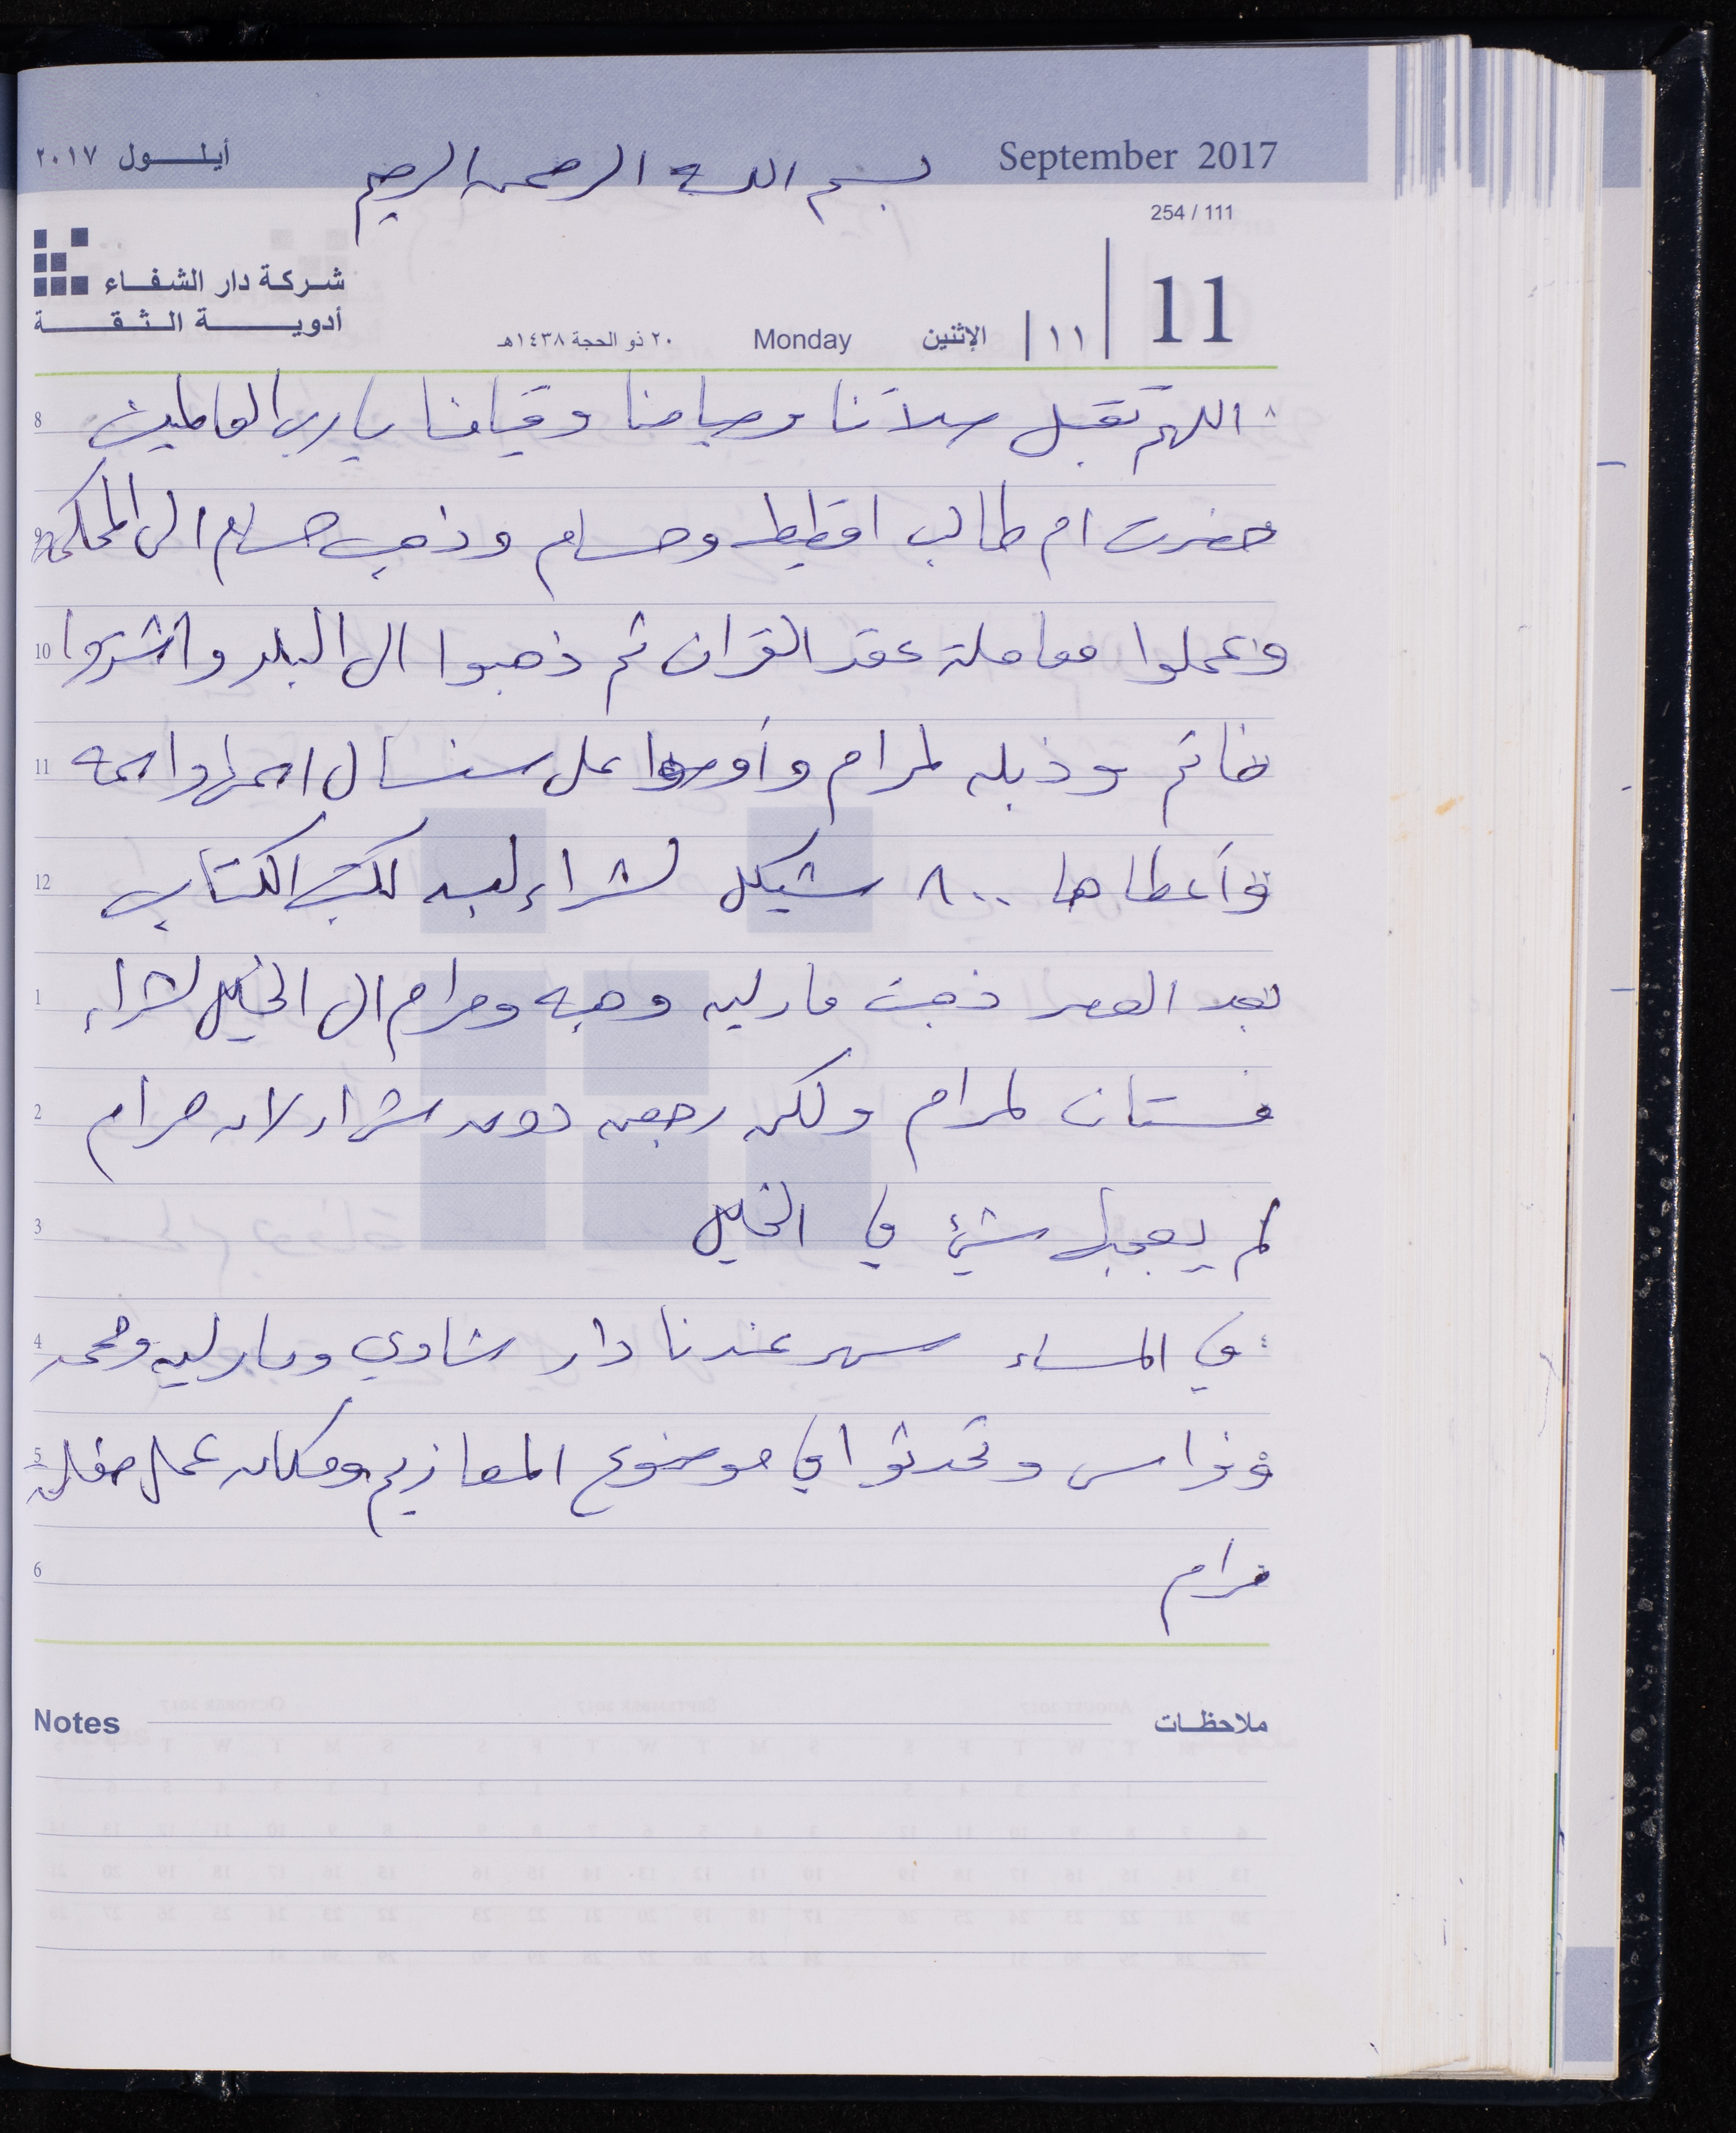 September 2017
أيلول ٢٠١٧
بسم الله الرحمن الرحيم
254 / 111
شركة دار الشفاء
أدوية الثقة
11 | ١١ | الإثنين Monday ٢٠ ذو الحجة ١٤٣٨هـ
8 اللهم تقبل صلاتنا وصيامنا وقيامنا يا رب العالمين
9 حضرت ام طالب اقطيط وحسام وذهب حسام الى المحكمة
10 وعملوا معاملة عقد القران ثم ذهبوا الى البلد واشتروا
11 خاتم وذبله لمرام وأوصوا على سنسال اسمها واسمه
12 وأعطاها ٨٠٠ شيكل لشراء لبسه لكتب الكتاب
1 بعد العصر ذهبت مارلين وهبه ومرام الى الخليل لشراء
2 فستان لمرام ولكن رجعن دون شراء لان مرام
3 لم يعجبها شيئ في الخليل
4 في المساء سهر عندنا دار شادي ومارلين ومحمد
5 وفراس وتحدثوا في موضوع المعازيم ومكان عمل حفلة
6 مرام
Notes ملاحظات